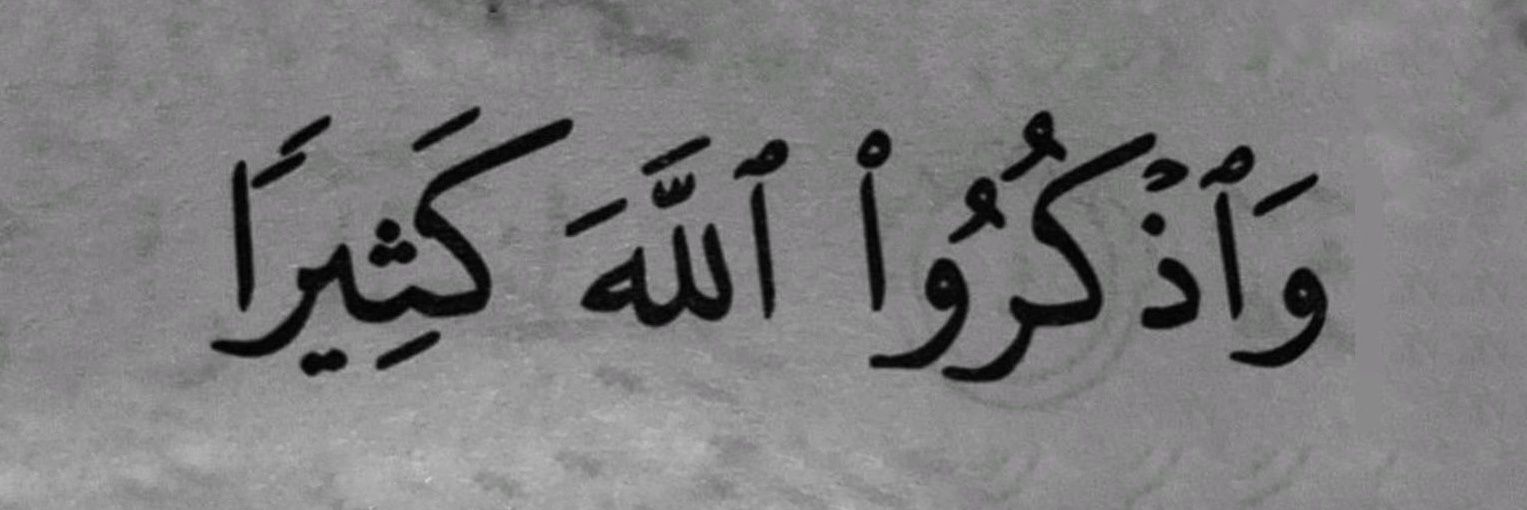 وَٱذۡكُرُواْ ٱللَّهَ كَثِيرًا